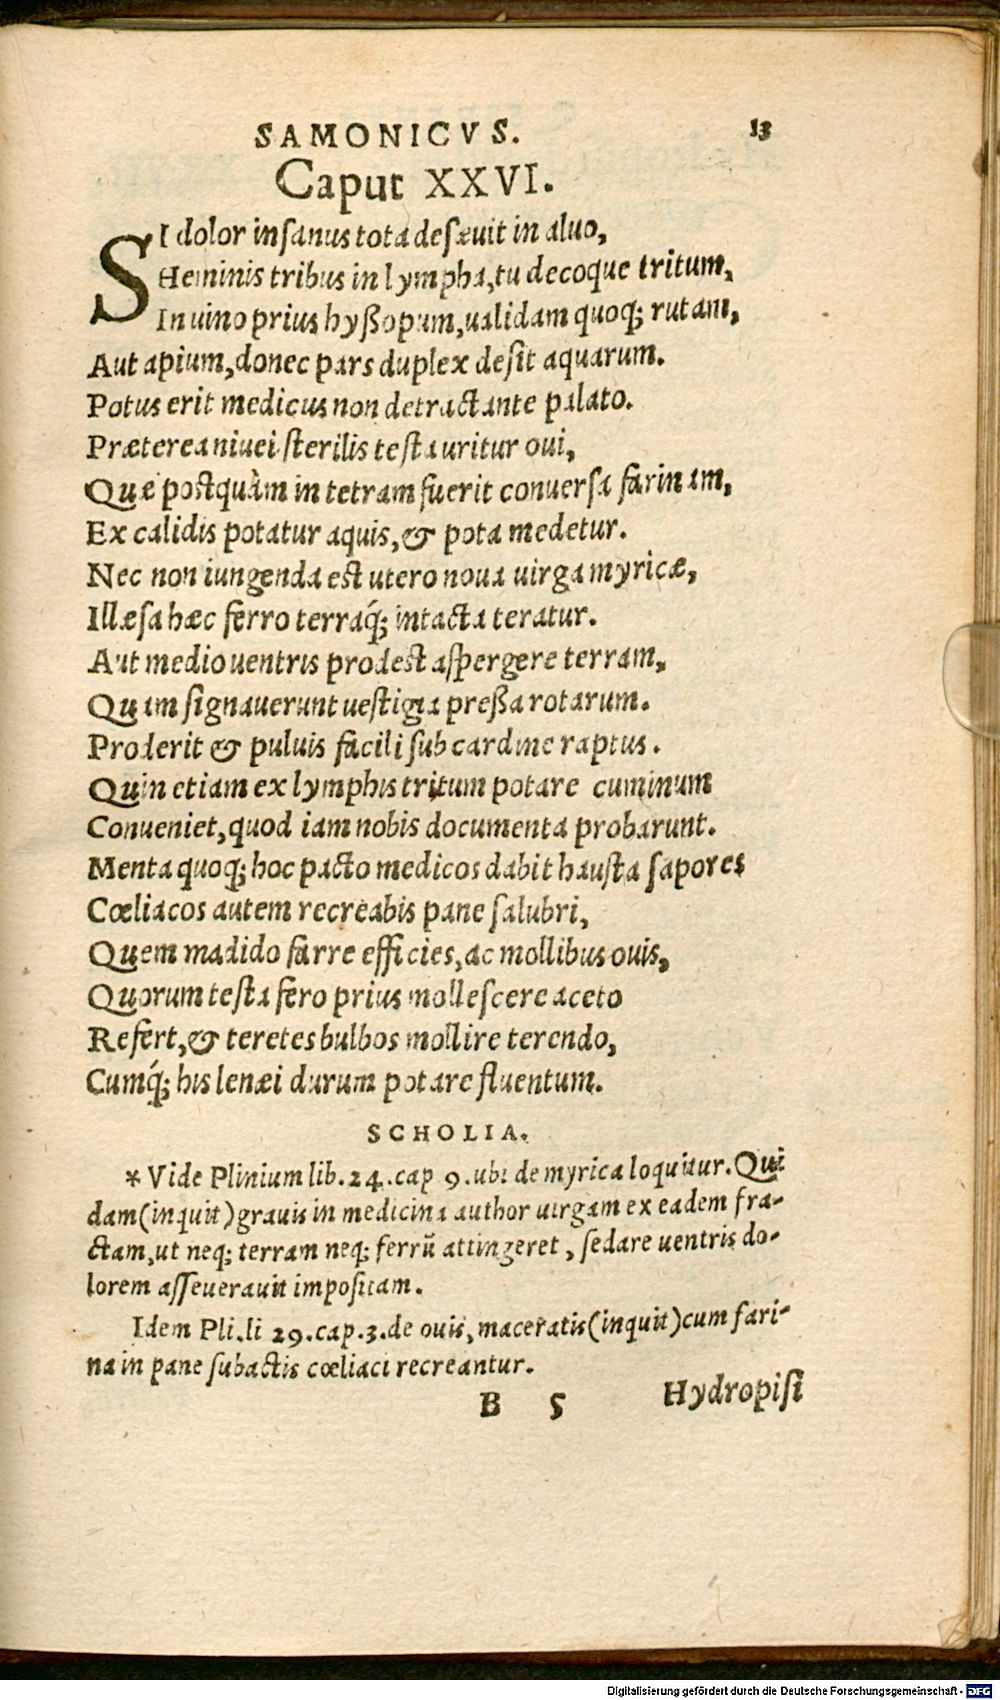 SAMONICVS. 13
Caput XXVI.
SI dolor insanus tota desæuit in aluo,
Heminis tribus in lympha, tu decoque tritum,
In uino prius hyßopum, ualidam quoq; rutam,
Aut apium, donec pars duplex desit aquarum.
Potus erit medicus non detractante palato.
Præterea niuei sterilis testa uritur oui,
Quæ postquàm in tetram fuerit conuersa farinam,
Ex calidis potatur aquis, & pota medetur.
Nec non iungenda est utero noua uirga myricæ,
Illæsa hæc ferro terraq́; intacta teratur.
Aut medio uentris prodest aspergere terram,
Quam signauerunt uestigia preßa rotarum.
Proderit & puluis facili sub cardine raptus.
Quin etiam ex lymphis tritum potare cuminum
Conueniet, quod iam nobis documenta probarunt.
Menta quoq; hoc pacto medicos dabit hausta sapores
Cœliacos autem recreabis pane salubri,
Quem madido farre efficies, ac mollibus ouis,
Quorum testa fero prius mollescere aceto
Refert, & teretes bulbos mollire terendo,
Cumq́; his lenæi durum potare fluentum.
SCHOLIA.
* Vide Plinium lib. 24. cap 9. ubi de myrica loquitur. Qui
dam (inquit) grauis in medicina author uirgam ex eadem fra-
ctam, ut neq; terram neq; ferrū attingeret, sedare uentris do-
lorem asseuerauit impositam.
Idem Pli. li 29. cap. 3. de ouis, maceratis (inquit) cum fari-
na in pane subactis cœliaci recreantur.
B 5 Hydropisi
Digitalisierung gefördert durch die Deutsche Forschungsgemeinschaft - DFG